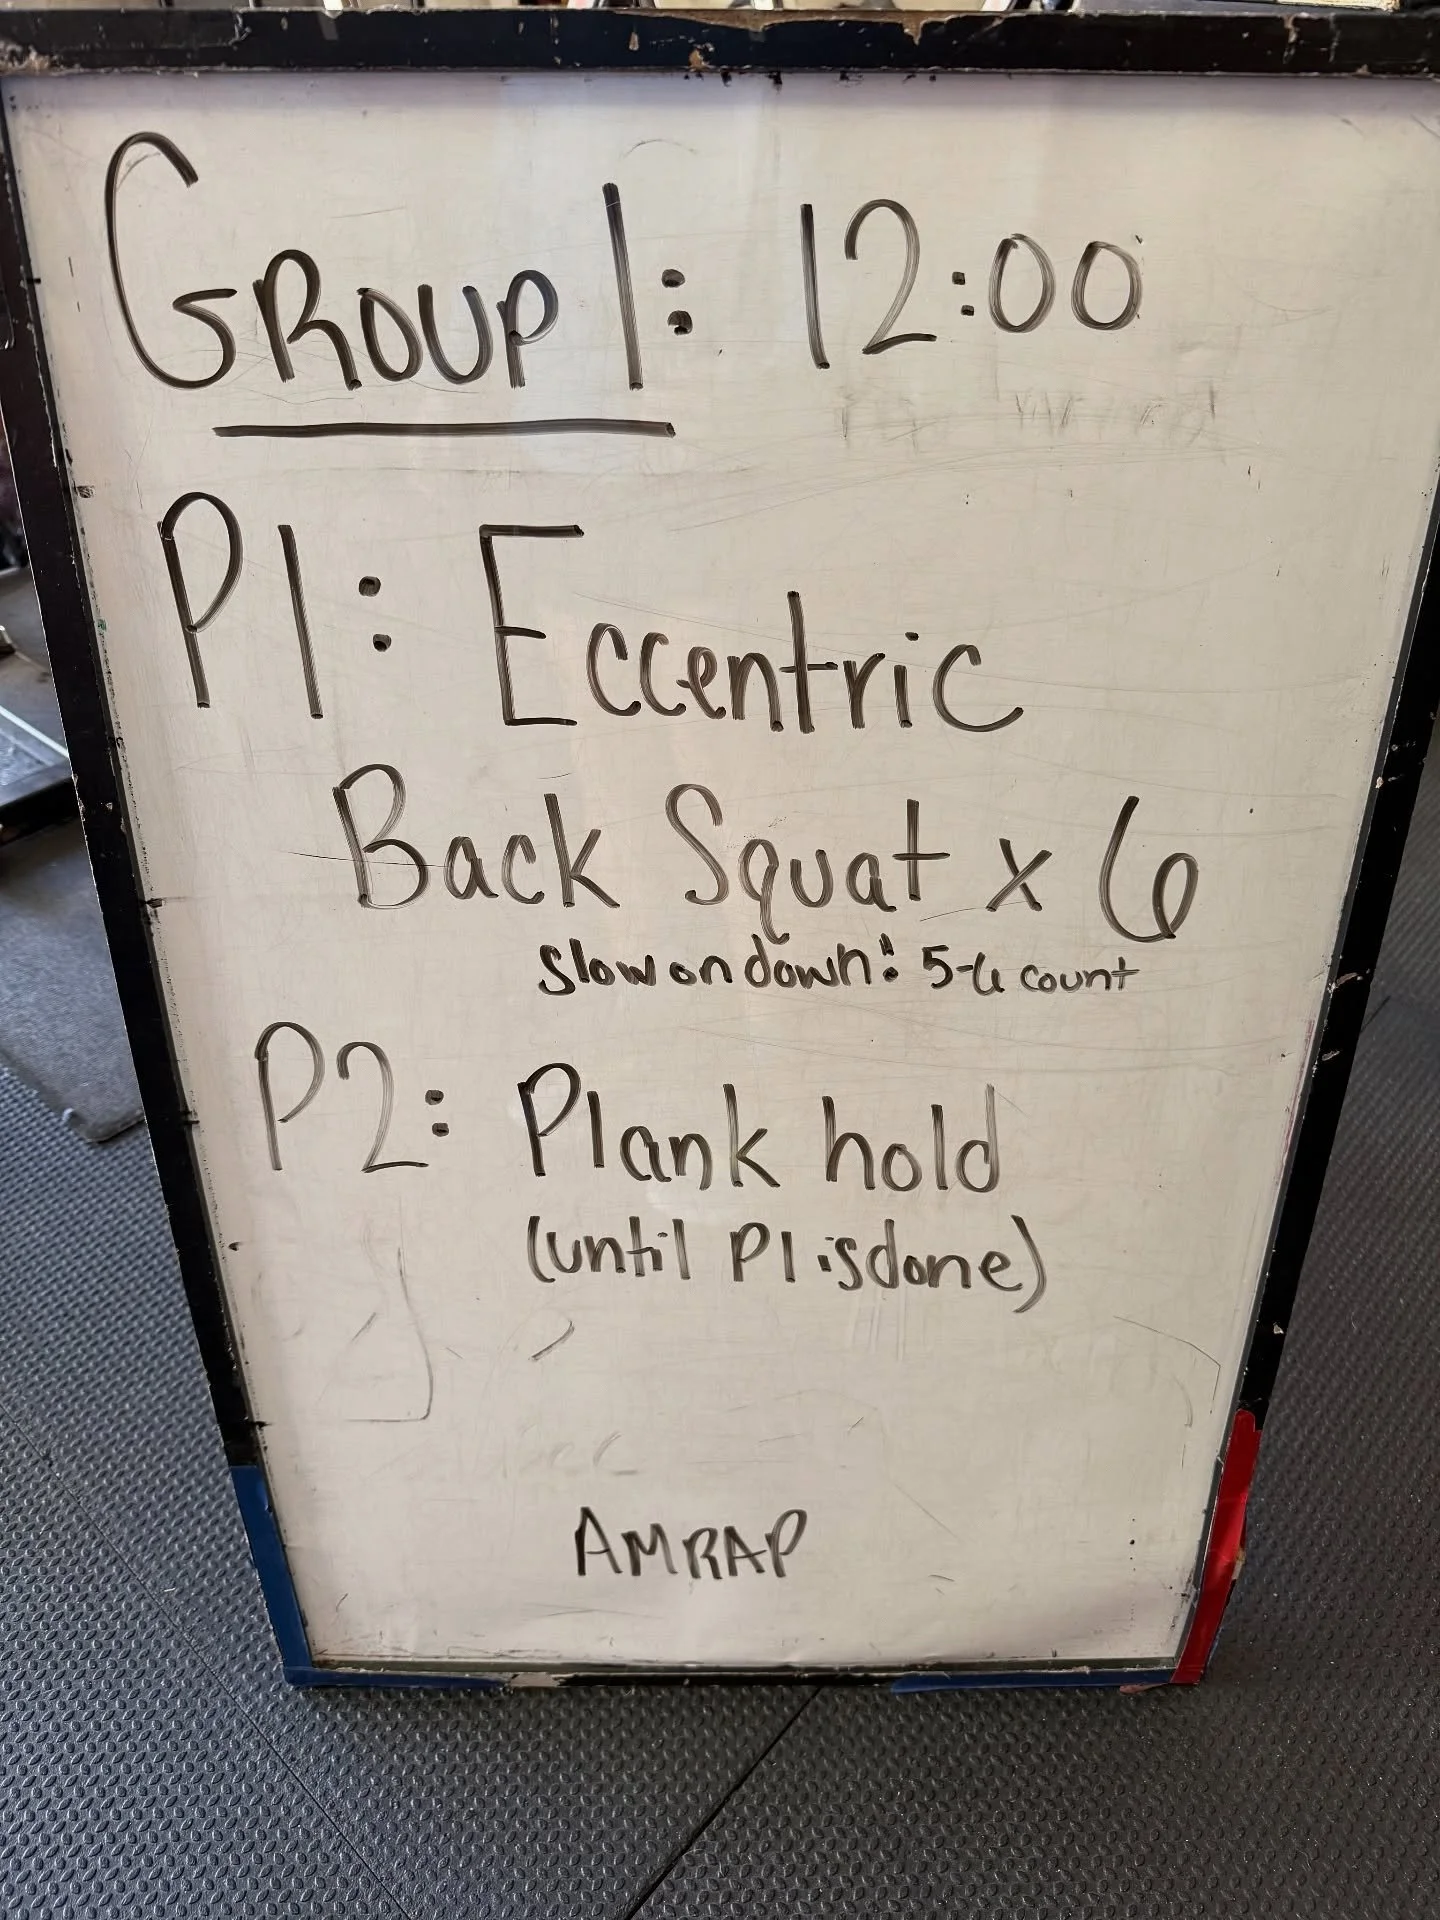 GROUP 1: 12:00
P1: Eccentric
Back Squat x 6
Slow on down! 5-6 count
P2: Plank hold
(until P1 is done)
AMRAP